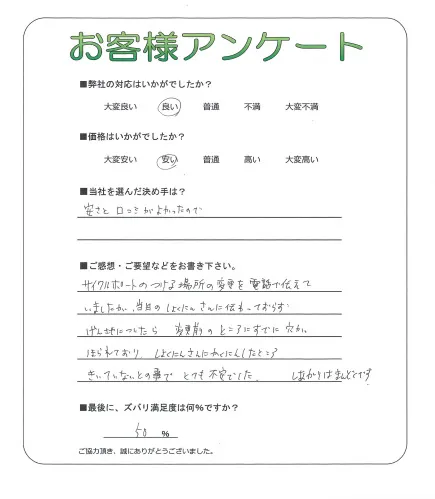 お客様アンケート
■弊社の対応はいかがでしたか？
大変良い 良い 普通 不満 大変不満
■価格はいかがでしたか？
大変安い 安い 普通 高い 大変高い
■当社を選んだ決め手は？
安さと 口コミがよかったので
■ご感想・ご要望などをお書き下さい。
サイクルポートのつける場所の変更を電話で伝えて
いましたが、当日のしょくにんさんに伝わっておらず
げんばについたら 変更前のところにすでに穴が
ほられており、しょくにんさんにかくにんしたところ
きいていないとの事で とても不安でした。 しあがりはまんぞくです
■最後に、ズバリ満足度は何％ですか？
50 ％
ご協力頂き、誠にありがとうございました。